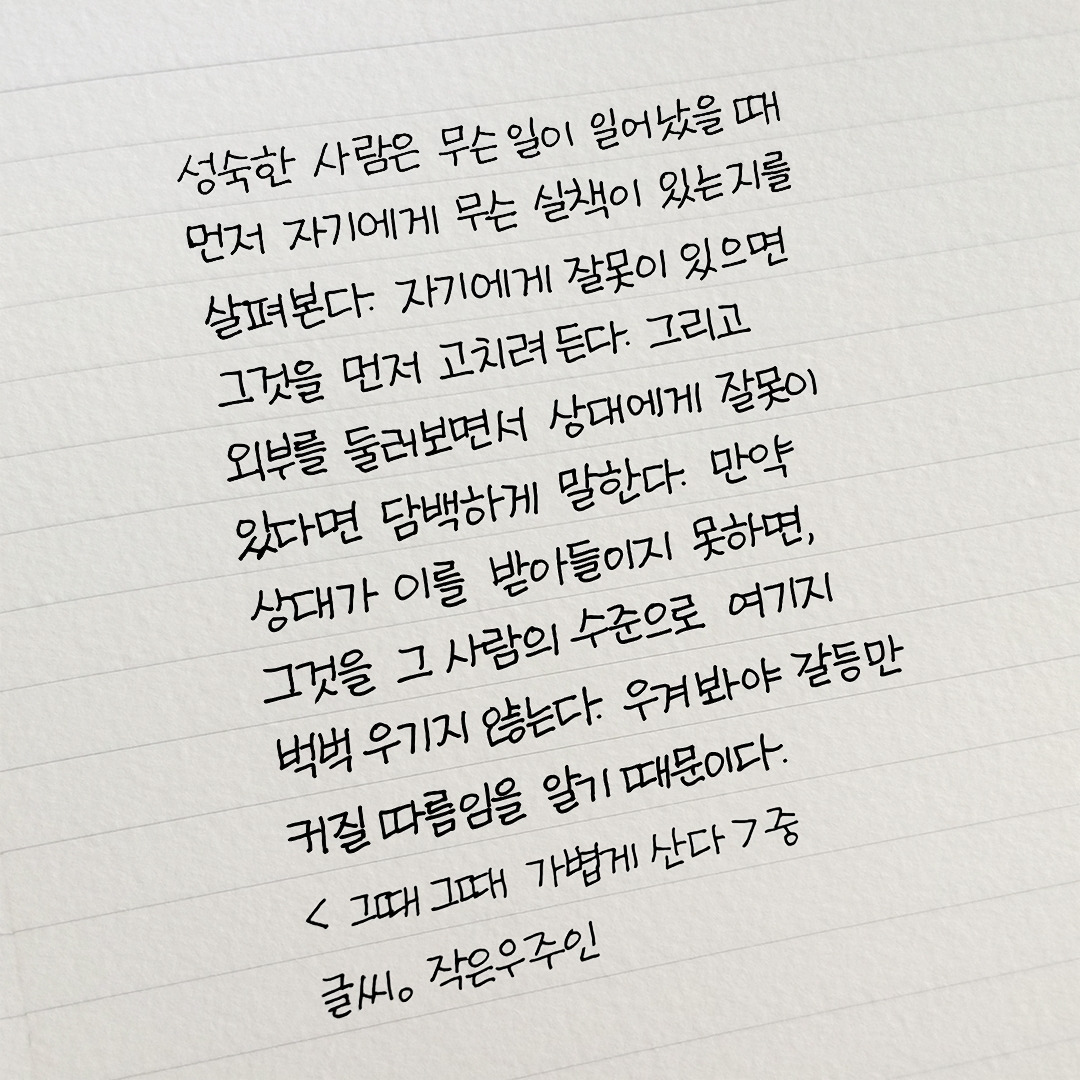 성숙한 사람은 무슨 일이 일어났을 때
먼저 자기에게 무슨 실책이 있는지를
살펴본다. 자기에게 잘못이 있으면
그것을 먼저 고치려 든다. 그리고
외부를 둘러보면서 상대에게 잘못이
있다면 담백하게 말한다. 만약
상대가 이를 받아들이지 못하면,
그것을 그 사람의 수준으로 여기지
벅벅 우기지 않는다. 우겨봐야 갈등만
커질 따름임을 알기 때문이다.
< 그때그때 가볍게 산다 > 중
글씨。작은우주인